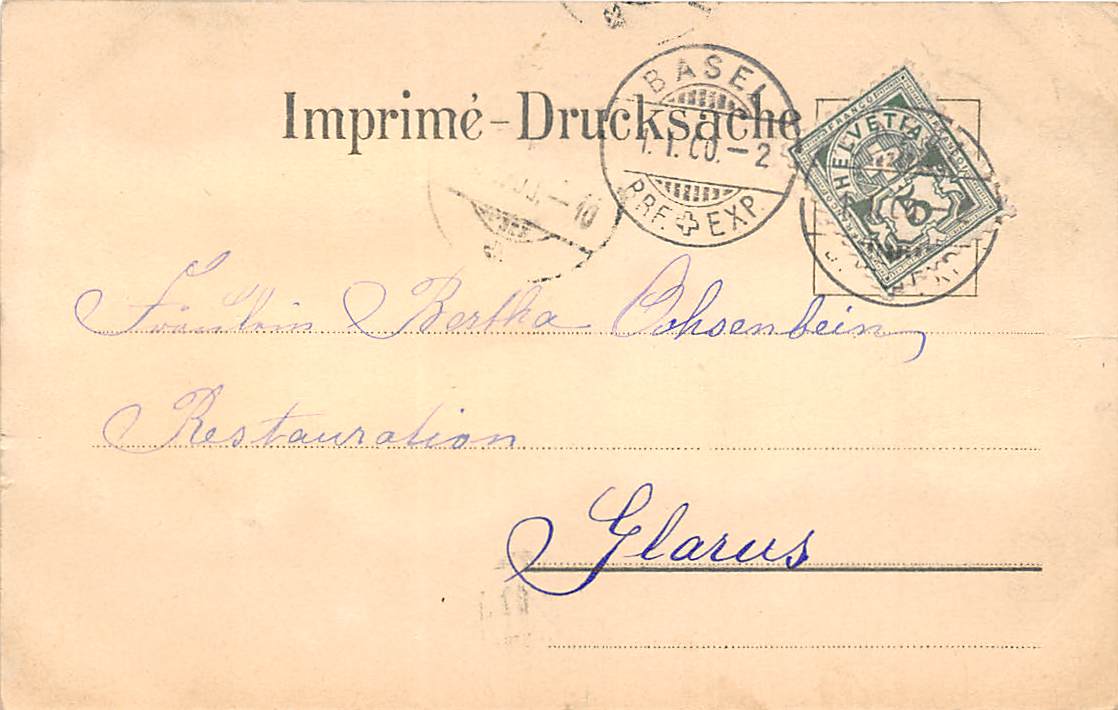 Imprimé-Drucksache
BASEL
1.I.00.-2
BRF. EXP.
FRANCO
HELVETIA
5
-10
Fräulein Bertha Ochsenbein,
Restauration
Glarus